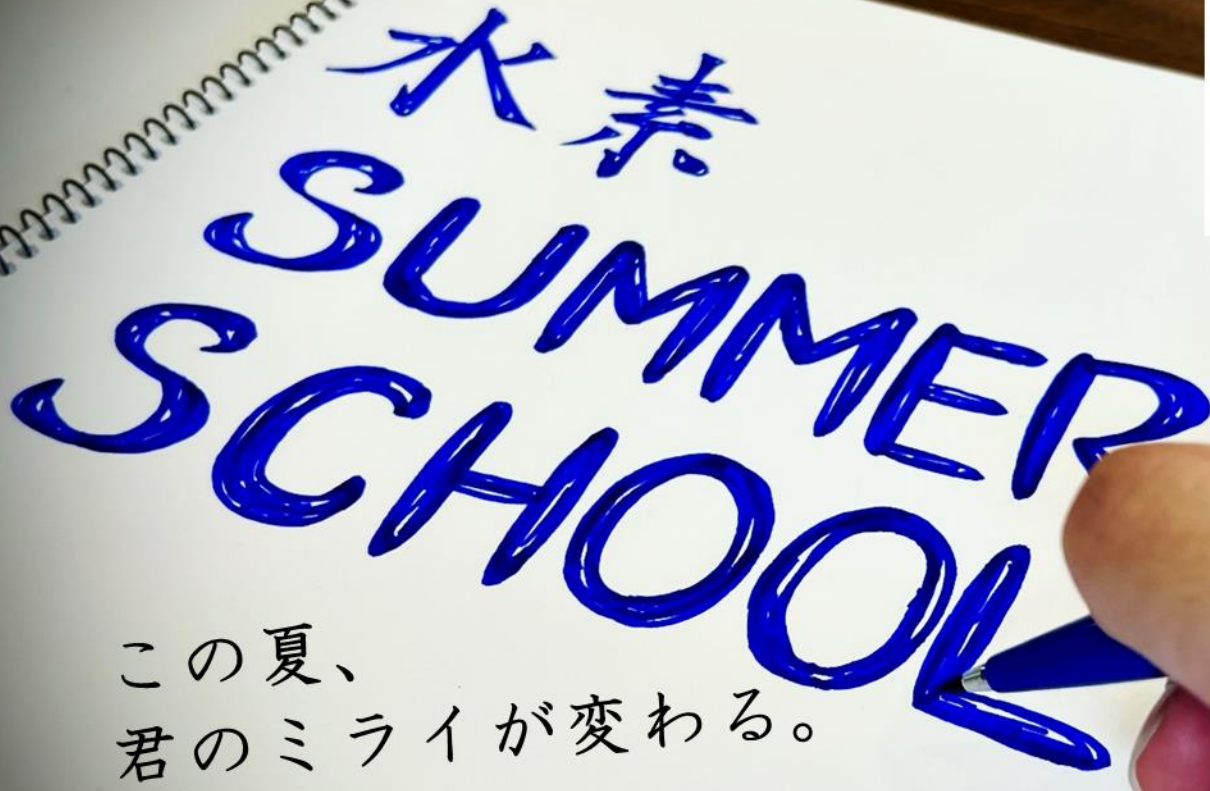 水素
SUMMER
SCHOOL
この夏、
君のミライが変わる。